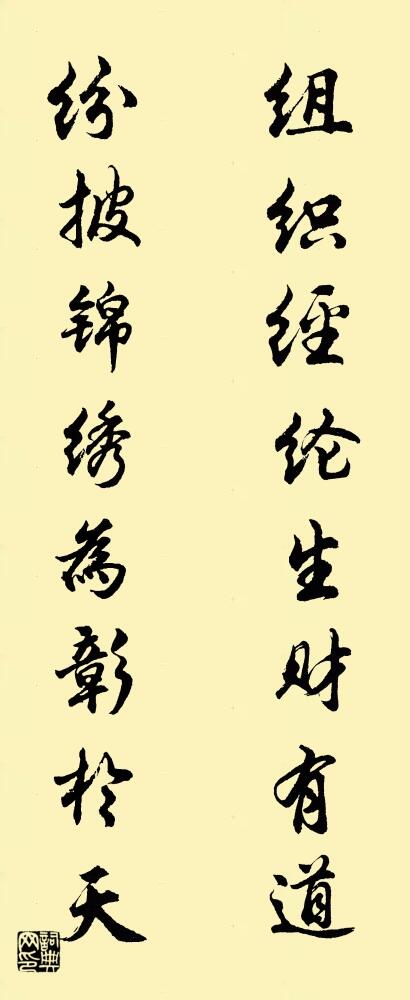 组织经纶生财有道
纷披锦绣为彰於天
词典网印